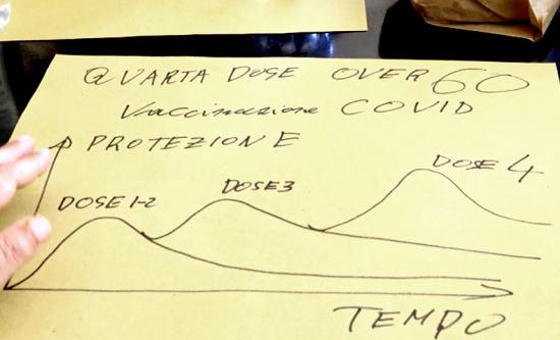 QUARTA DOSE OVER 60
Vaccinazione COVID
PROTEZIONE
DOSE 4
DOSE 3
DOSE 1-2
TEMPO